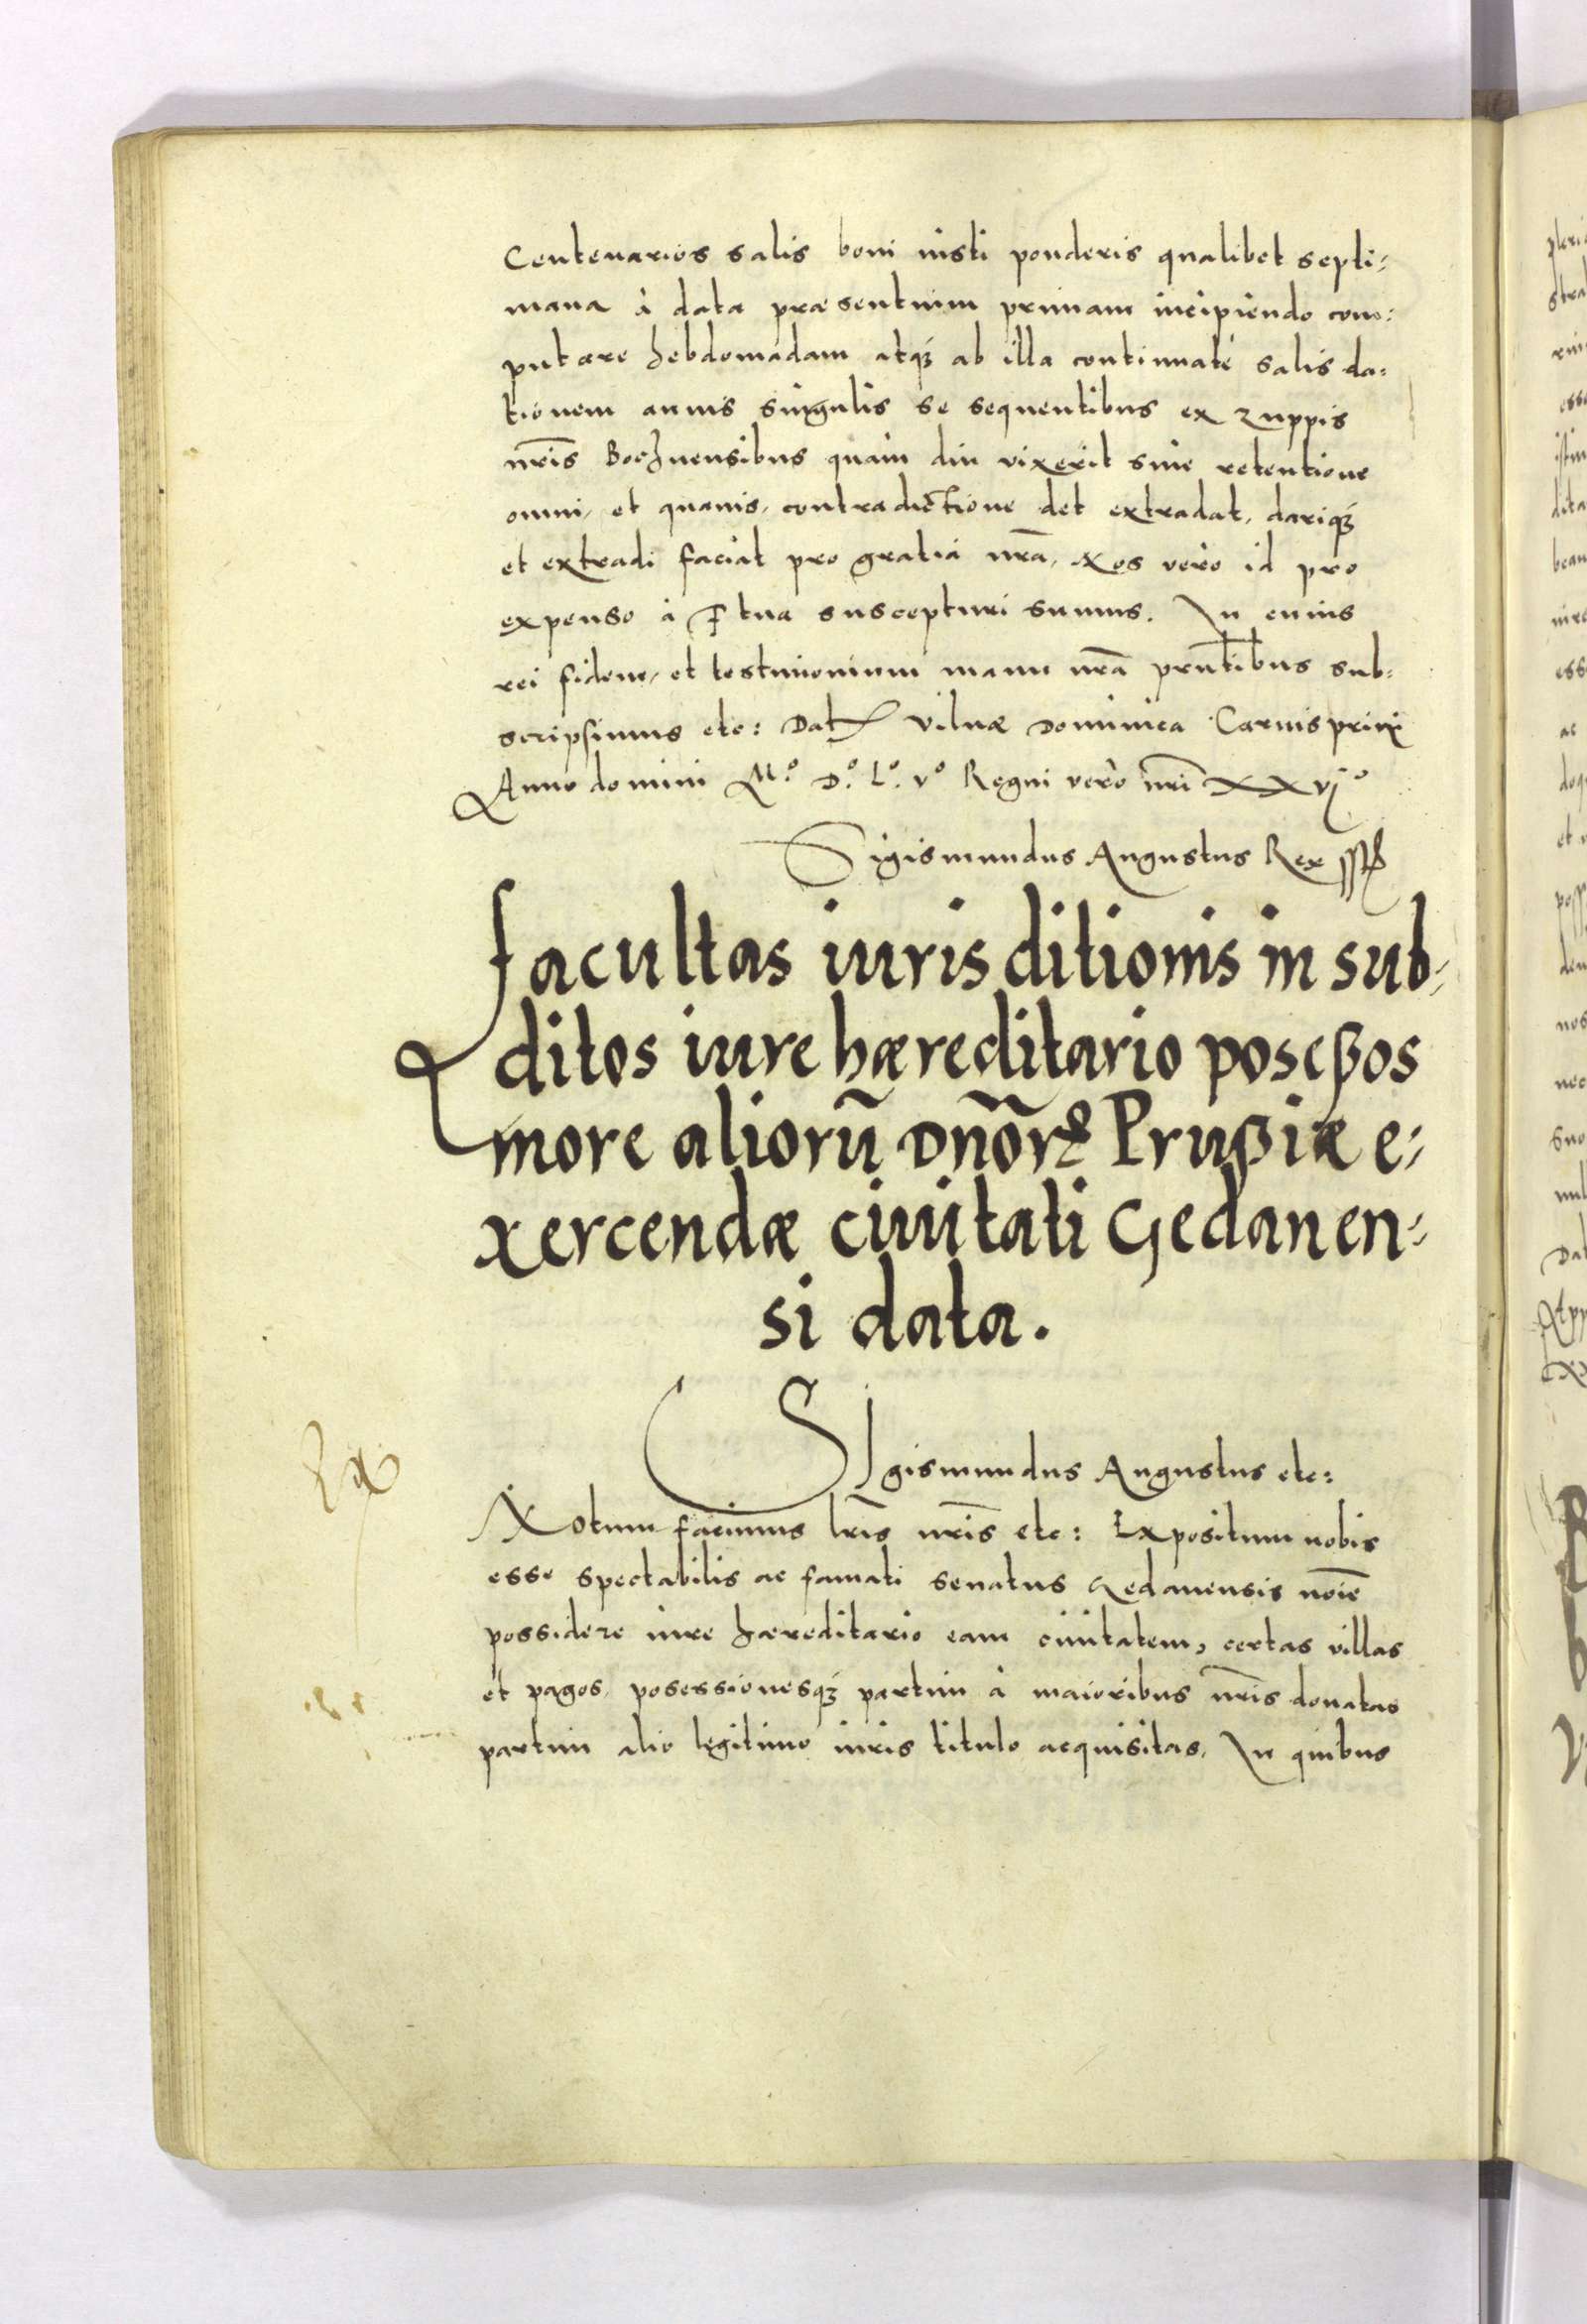 Centenarios salis boni iusti ponderis qualibet septi⸗
mana à data præsentium primam incipiendo com⸗
putare hebdomadam atq₃ ab illa continuaté salis da⸗
tionem annis singulis se sequentibus ex zuppis
nr̃is Bochnensibus quam diu vixerit sine retentione
omni, et quauis, contradictione det extradat, dariq₃
et extradi faciat pro gratiá nr̃a, Nos verò id pro
expenso à F tua suscepturi sumus. In cuius
rei fidem, et testimonium manu nr̃a prñtibus sub⸗
scripsimus etc: Dat Vilnæ Dominica Carnis priui
Anno domini M.º D.º L.º vº Regni verò nr̃i XXVIº
Sigismundus Augustus Rex sst
Facultas iuris ditionis in sub⸗
ditos iure hæreditario poseßos
more aliorũ Dñorꝝ Prußiæ e⸗
xercendæ ciuitati Gedanen⸗
si data.
SIgismundus Augustus etc:
Notum facimus lr̃is nr̃is etc: Expositum nobis
esse spectabilis ac famati senatus Gedanensis noĩe
possidere iure hæreditario eam ciuitatem, certas villas
et pagos, posessionesq₃ partim à maioribus nr̃is donatas
partim alio legitimo iuris titulo acquisitas, In quibus